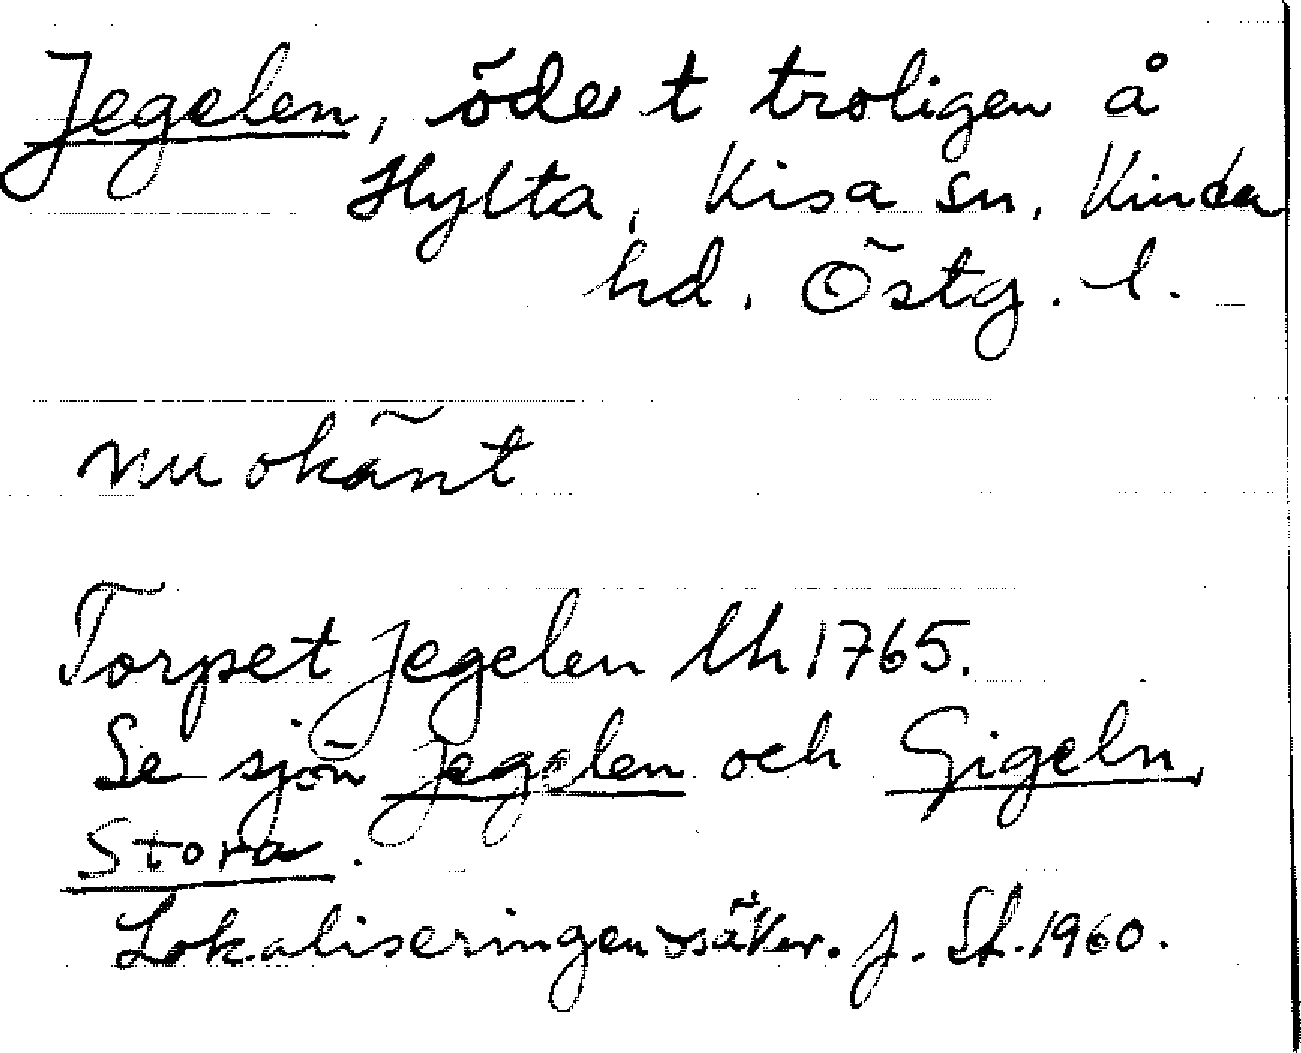 Jegelen, öde t troligen å
Hylta, Kisa sn, Kinda
hd. Östg. l.
nu okänt
Torpet Jegelen lh 1765.
Se sjön Jegelen och Gigeln,
Stora.
Lokaliseringen osäker. J. St. 1960.